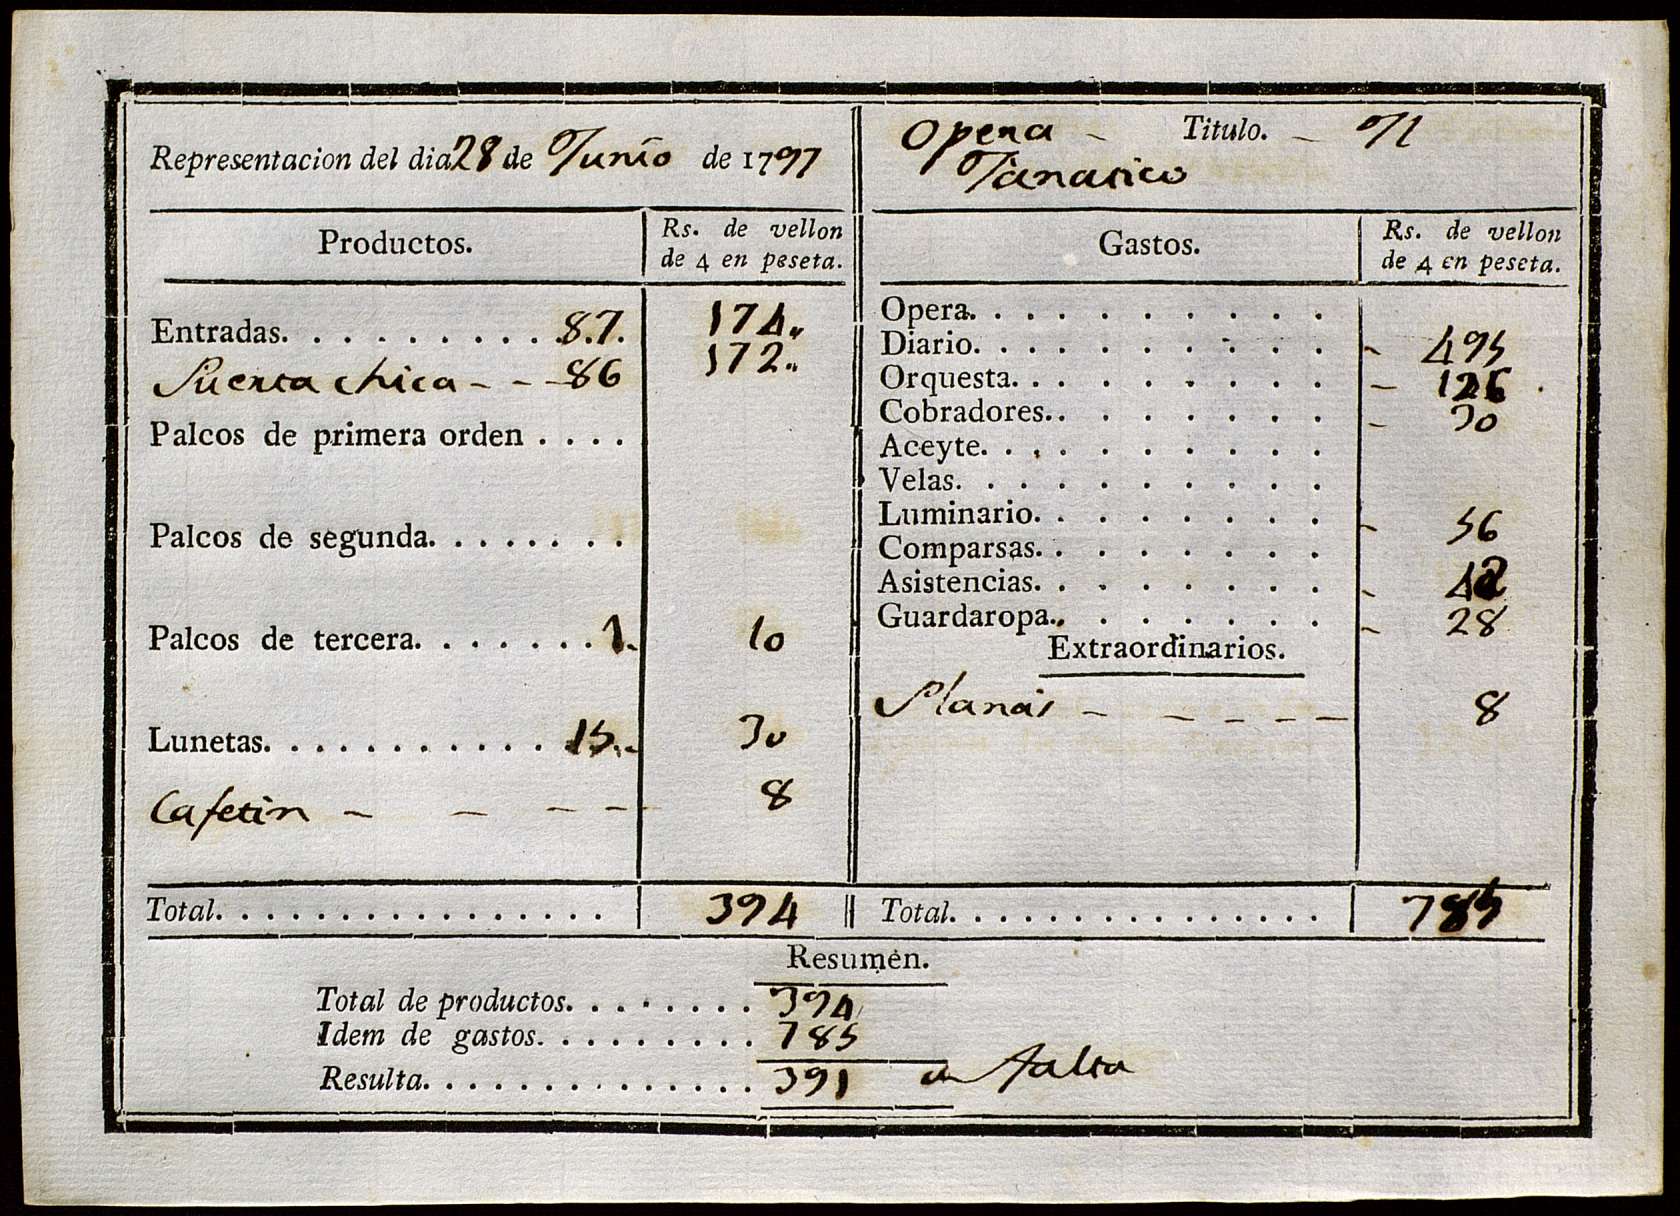 Representacion del dia 28 de Junio de 1797
Productos. Rs. de vellon de 4 en peseta.
Entradas. . . . . . . . . . 87. 174..
Puerta chica - - - 86 172..
Palcos de primera orden . . . .
Palcos de segunda. . . . . . . .
Palcos de tercera. . . . . . . 1. 10
Lunetas. . . . . . . . . . . . 15.. 30
Cafetin - - - - 8
Total. . . . . . . . . . . . . . . . 394
Opera - Titulo. - Il
Fanatico
Gastos. Rs. de vellon de 4 en peseta.
Opera. . . . . . . . . .
Diario. . . . . . . . . . - 495
Orquesta. . . . . . . . . - 126
Cobradores. . . . . . . . - 30
Aceyte. . . . . . . . . .
Velas. . . . . . . . . .
Luminario. . . . . . . . - 56
Comparsas. . . . . . . .
Asistencias. . . . . . . . - 42
Guardaropa. . . . . . . . - 28
Extraordinarios.
- - - - - 8
Total. . . . . . . . . . . . . . . . 785
Resumen.
Total de productos. . . . . . . . 394
Idem de gastos. . . . . . . . . 785
Resulta. . . . . . . . . . . . . . 391 de falta